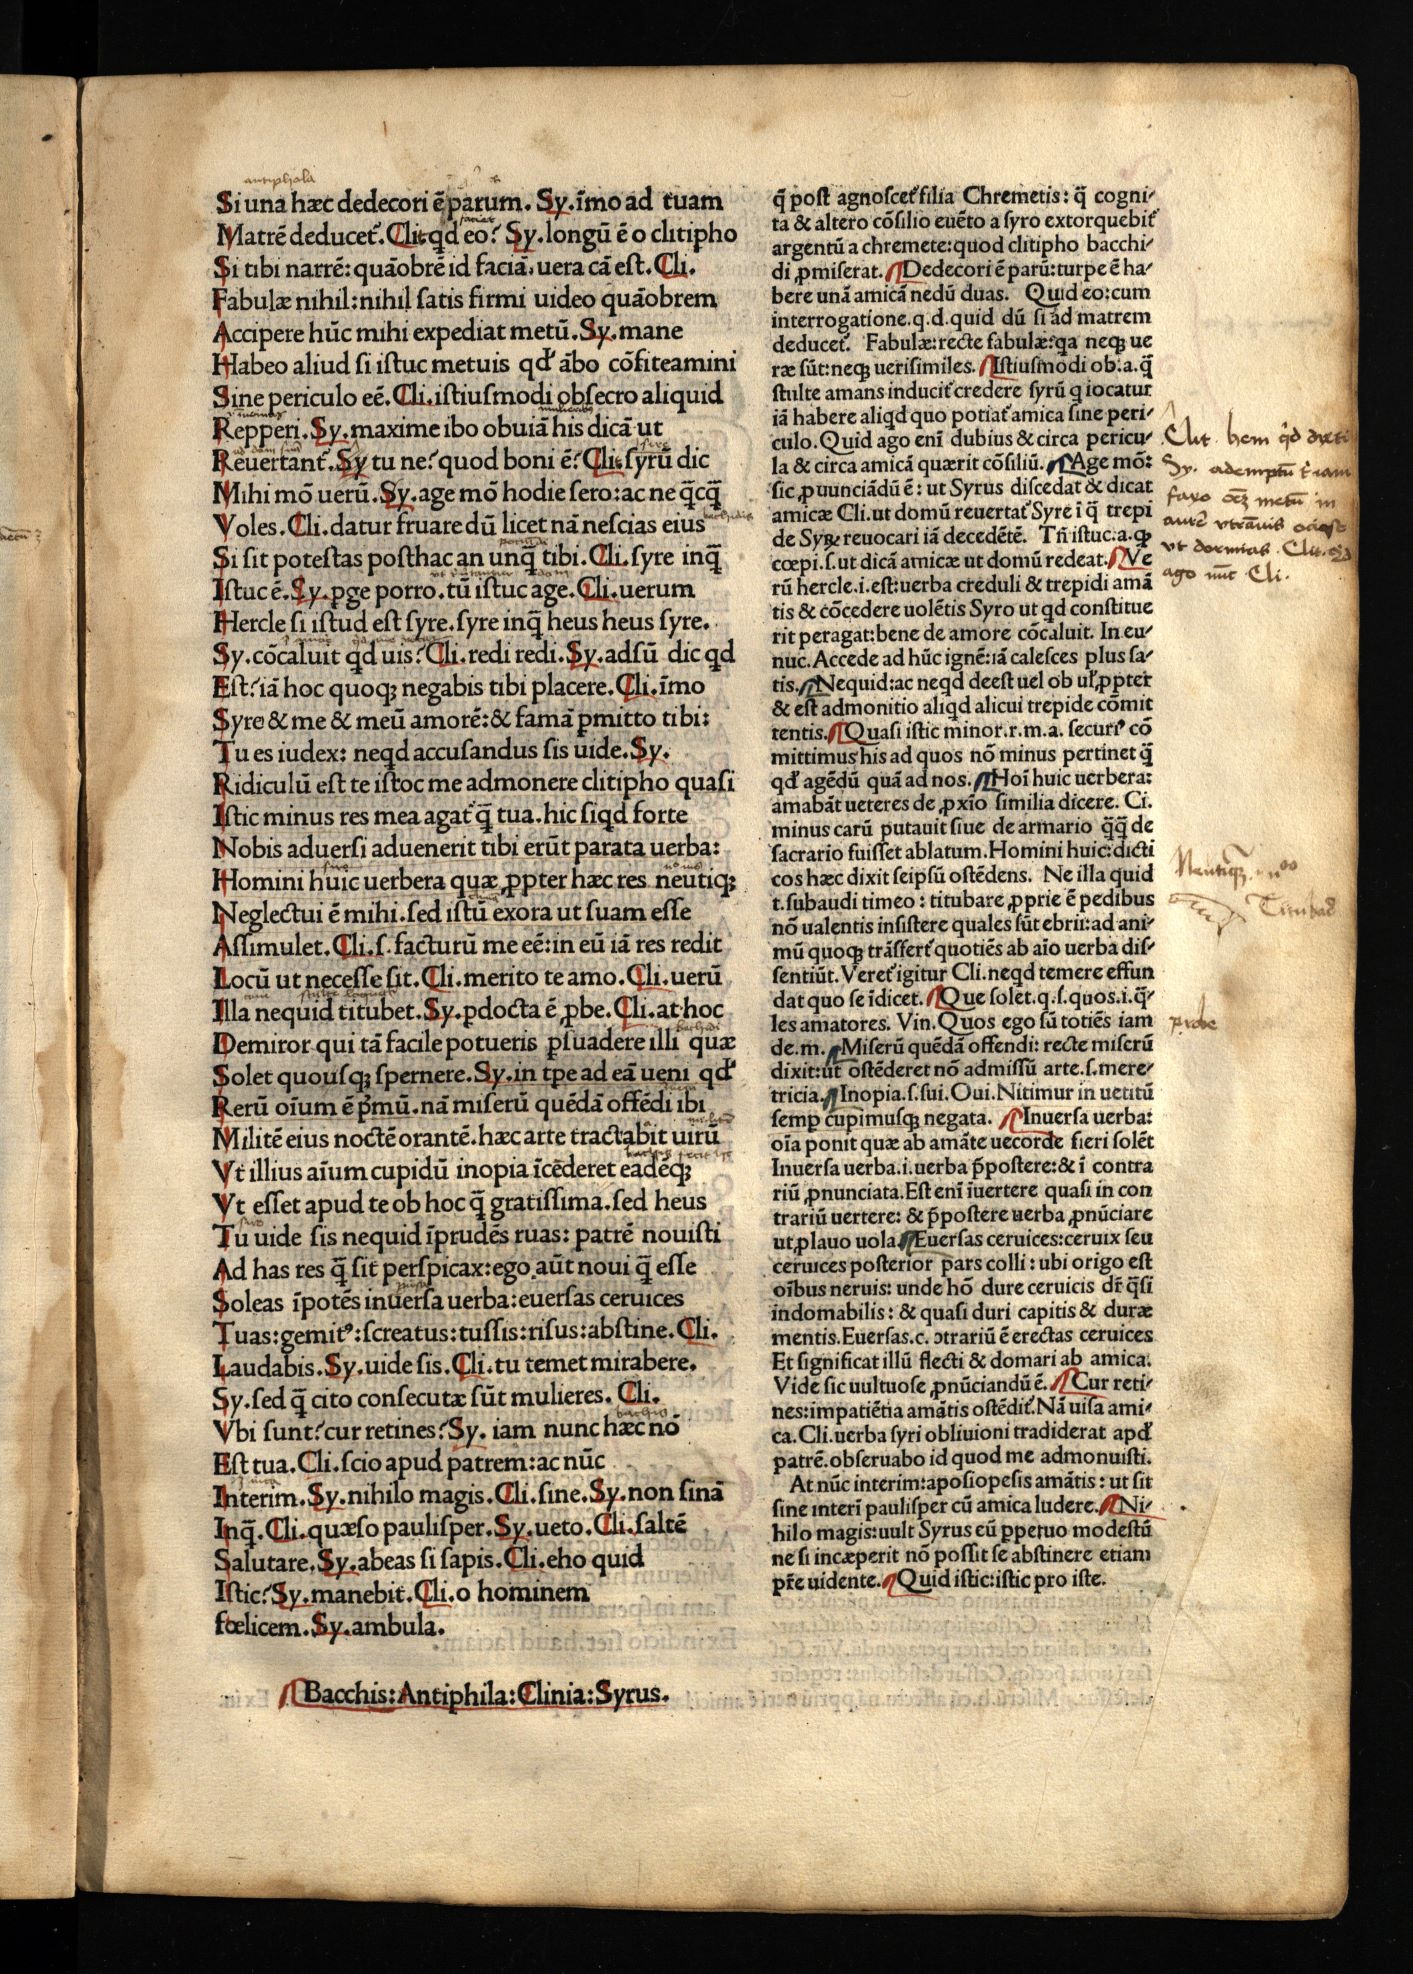 antiphala
Si una hæc dedecori ē parum. Sy. īmo ad tuam
Matrē deducet᷒. Cli. qd eo? Sy. longū ē o clitipho
Si tibi narrē: quāobrē id faciā, uera cā est. Cli.
Fabulæ nihil: nihil satis firmi uideo quāobrem
Accipere hūc mihi expediat metū. Sy. mane
Habeo aliud si istuc metuis qđ ābo cōfiteamini
Sine periculo eē. Cli. istiusmodi obsecro aliquid
Repperi. Sy. maxime ibo obuiā his dicā ut
Reuertant᷒. Sy tu ne? quod boni ē? Cli. syrū dic
Mihi mō uerū. Sy. age mō hodie sero: ac ne q̄cq̄
Voles. Cli. datur fruare dū licet nā nescias eius
Si sit potestas posthac an unq̄ tibi. Cli. syre inq̄
Istuc ē. Sy. ꝑge porro. tū istuc age. Cli. uerum
Hercle si istud est syre. syre inq̄ heus heus syre.
Sy. cōcaluit qd uis? Cli. redi redi. Sy. adsū dic qd
Est? iā hoc quoqꝫ negabis tibi placere. Cli. īmo
Syre & me & meū amorē: & famā ꝑmitto tibi:
Tu es iudex: neqd accusandus sis uide. Sy.
Ridiculū est te istoc me admonere clitipho quasi
Istic minus res mea agat᷒ q̄ tua. hic siqd forte
Nobis aduersi aduenerit tibi erūt parata uerba:
Homini huic uerbera quæ ꝓpter hæc res neutiqꝫ
Neglectui ē mihi. sed istū exora ut suam esse
Assimulet. Cli. s. facturū me eē: in eū iā res redit
Locū ut necesse sit. Cli. merito te amo. Cli. uerū
Illa nequid titubet. Sy. ꝑdocta ē ꝓbe. Cli. at hoc
Demiror qui tā facile potueris ꝑsuadere illi quæ
Solet quousqꝫ spernere. Sy. in tꝑe ad eā ueni qđ
Rerū oīum ē p̄mū. nā miserū quēdā offēdi ibi
Militē eius noctē orantē. hæc arte tractabāt uirū
Vt illius aīum cupidū inopia īcēderet eadēqꝫ
Vt esset apud te ob hoc q̄ gratissima. sed heus
Tu uide sis nequid īprudēs ruas: patrē nouisti
Ad has res q̄ sit perspicax: ego aūt noui q̄ esse
Soleas īpotēs inuersa uerba: euersas ceruices
Tuas: gemitꝰ: screatus: tussis: risus: abstine. Cli.
Laudabis. Sy. uide sis. Cli. tu temet mirabere.
Sy. sed q̄ cito consecutæ sūt mulieres. Cli.
Vbi sunt? cur retines? Sy. iam nunc hæc nō
Est tua. Cli. scio apud patrem: ac nūc
Interim. Sy. nihilo magis. Cli. sine. Sy. non sinā
Inq̄. Cli. quæso paulisper. Sy. ueto. Cli. saltē
Salutare. Sy. abeas si sapis. Cli. eho quid
Istic? Sy. manebit. Cli. o hominem
fœlicem. Sy. ambula.
Bacchis: Antiphila: Clinia: Syrus.
q̄ post agnoscet᷒ filia Chremetis: q̄ cogni-
ta & altero cōsilio euēto a syro extorquebit᷒
argentū a chremete: quod clitipho bacchi-
di ꝓmiserat. Dedecori ē parū: turpe ē ha-
bere unā amicā nedū duas. Quid eo: cum
interrogatione. q. d. quid dū si ad matrem
deducet᷒. Fabulæ: recte fabulæ: qa neqꝫ ue
ræ sūt: neqꝫ uerisimiles. Istiusmodi ob: a. q̄
stulte amans inducit᷒ credere syrū q iocatur
iā habere aliqd quo potiat᷒ amica sine peri-
culo. Quid ago enī dubius & circa pericu-
la & circa amicā quærit cōsiliū. Age mō:
sic ꝓuunciādū ē: ut Syrus discedat & dicat
amicæ Cli. ut domū reuertat᷒ Syre ī q̄ trepi
de Syꝝ reuocari iā decedētē. Tn̄ istuc. a. qꝫ
cœpi. s. ut dicā amicæ ut domū redeat. Ve
rū hercle. i. est: uerba creduli & trepidi amā
tis & cōcedere uolētis Syro ut qd constitue
rit peragat: bene de amore cōcaluit. In eu-
nuc. Accede ad hūc ignē: iā calesces plus sa-
tis. Nequid: ac neqd deest uel ob ul̛ ꝓpter
& est admonitio aliqd alicui trepide cōmit
tentis. Quasi istic minor. r. m. a. securiꝰ cō
mittimus his ad quos nō minus pertinet q̄
qđ agēdū quā ad nos. Hoī huic uerbera:
amabāt ueteres de ꝓxīo similia dicere. Ci.
minus carū putauit siue de armario q̄q̄ de
sacrario fuisset ablatum. Homini huic: dicti
cos hæc dixit seipsū ostēdens. Ne illa quid
t. subaudi timeo: titubare ꝓprie ē pedibus
nō ualentis insistere quales sūt ebrii: ad ani-
mū quoqꝫ trāsfert᷒ quotiēs ab aīo uerba dis-
sentiūt. Veret᷒ igitur Cli. neqd temere effun
dat quo se īdicet. Que solet. q. s. quos. i. q̄-
les amatores. Vin. Quos ego sū totiēs iam
de. m. Miserū quēdā offendi: recte miserū
dixit: ut ostēderet nō admissū arte. s. mere-
tricia. Inopia. s. sui. Oui. Nitimur in uetitū
semp cupimusqꝫ negata. Inuersa uerba:
oīa ponit quæ ab amāte uecorde fieri solēt
Inuersa uerba. i. uerba p̄postere: & ī contra
riū ꝓnunciata. Est enī īuertere quasi in con
trariū uertere: & p̄postere uerba ꝓnūciare
ut ꝓlauo uola. Euersas ceruices: ceruix seu
ceruices posterior pars colli: ubi origo est
oībus neruis: unde hō dure ceruicis dr̄ q̄si
indomabilis: & quasi duri capitis & duræ
mentis. Euersas. c. ɔtrariū ē erectas ceruices
Et significat illū flecti & domari ab amica.
Vide sic uultuose ꝓnūciandū ē. Cur reti-
nes: impatiētia amātis ostēdit᷒. Nā uisa ami-
ca. Cli. uerba syri obliuioni tradiderat apđ
patrē. obseruabo id quod me admonuisti.
At nūc interim: aposiopesis amātis: ut sit
sine interī paulisper cū amica ludere. Ni-
hilo magis: uult Syrus eū ꝑpetuo modestū
ne si incæperit nō possit se abstinere etiam
pr̄e uidente. Quid istic: istic pro iste.
Clit. hem qd dixti
Sy. ademptū tibi iam
faxo oēꝫ metū in
aurē utrāuis ociose
ut dormias. Clit. qd
ago nūc Cli.
Neutiqꝫ
Titubat
probe